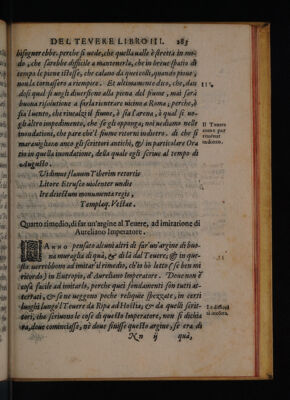 DEL TEVERE LIBRO III. 285
bisognerebbe. perche si vede, che quella valle è stretta in mo-
do, che sarebbe difficile a mantenerla, che in breue spatio di
tempo le piene istesse, che calano da quei colli, quando pioue,
non la tornassero a riempiere. Et ultimamente dico, che, dan
dosi qual si uogli diuersione alla piena del fiume, mai sarà
buona risolutione a farla rientrare uicino a Roma; perche, è
sia l uento, che rincalzi il fiume, ò sia l'arena, ò qual si uo-
gli altro impedimento, che se gli opponga, noi uediamo nelle
inondationi, che pare che'l fiume ritorni indietro. di che si
marauigliano anco gli scrittori antichi, & in particolare Ora
tio in quella inondatione, della quale egli scriue al tempo di
Augusto.
Il Teuere
come par
ritornar
indietro.
Vidimus flauum Tiberim retortis
Litore Etrusco uiolenter undis
Ire deiectum monumenta regis,
Templaq. Vestæ.
Quarto rimedio, di far un'argine al Teuere, ad imitatione di
Aureliano Imperatore.
HANNO pensato alcuni altri di far'un'argine di buo-
na muraglia di quà, & di là dal Teuere; & in que-
sto uorrebbono ad imitar il rimedio, ch'io hò letto (se ben mi
ricordo) in Eutropio, d'Aureliano Imperatore. Doue non è
cosa facile ad imitarlo, perche quei fondamenti son tutti at-
terrati, & se ne ueggono poche reliquie spezzate, in certi
luoghi lungo'l Teuere da Ripa ad Hostia; & da quelli scrit-
tori, che scriuono le cose di questo Imperatore, non si dichia
ra, doue cominciasse, nè doue finisse questo argine, se era di
La difficul
Nn ij quà,